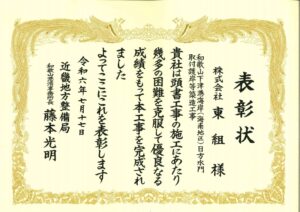 表彰状
株式会社 東組 様
和歌山下津港海岸(海南地区)日方水門
取付護岸等築造工事
貴社は頭書工事の施工にあたり
幾多の困難を克服して優良なる
成績をもって本工事を完成され
ました
よってここにこれを表彰します
令和六年七月十七日
近畿地方整備局
和歌山港湾事務所長 藤本光明